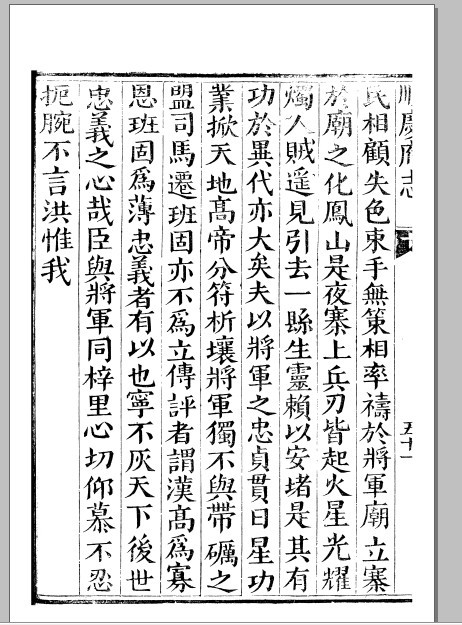 順慶府志
五十一
民相顧失色束手無策相率禱於將軍廟立寨
於廟之化鳳山是夜寨上兵刃皆起火星光耀
燭人賊遥見引去一縣生靈賴以安堵是其有
功於異代亦大矣夫以將軍之忠貞貫日星功
業掀天地髙帝分符析壤將軍獨不與帶礪之
盟司馬遷班固亦不爲立傳評者謂漢髙爲寡
恩班固爲薄忠義者有以也寧不灰天下後世
忠義之心哉臣與將軍同梓里心切仰慕不忍
扼腕不言洪惟我